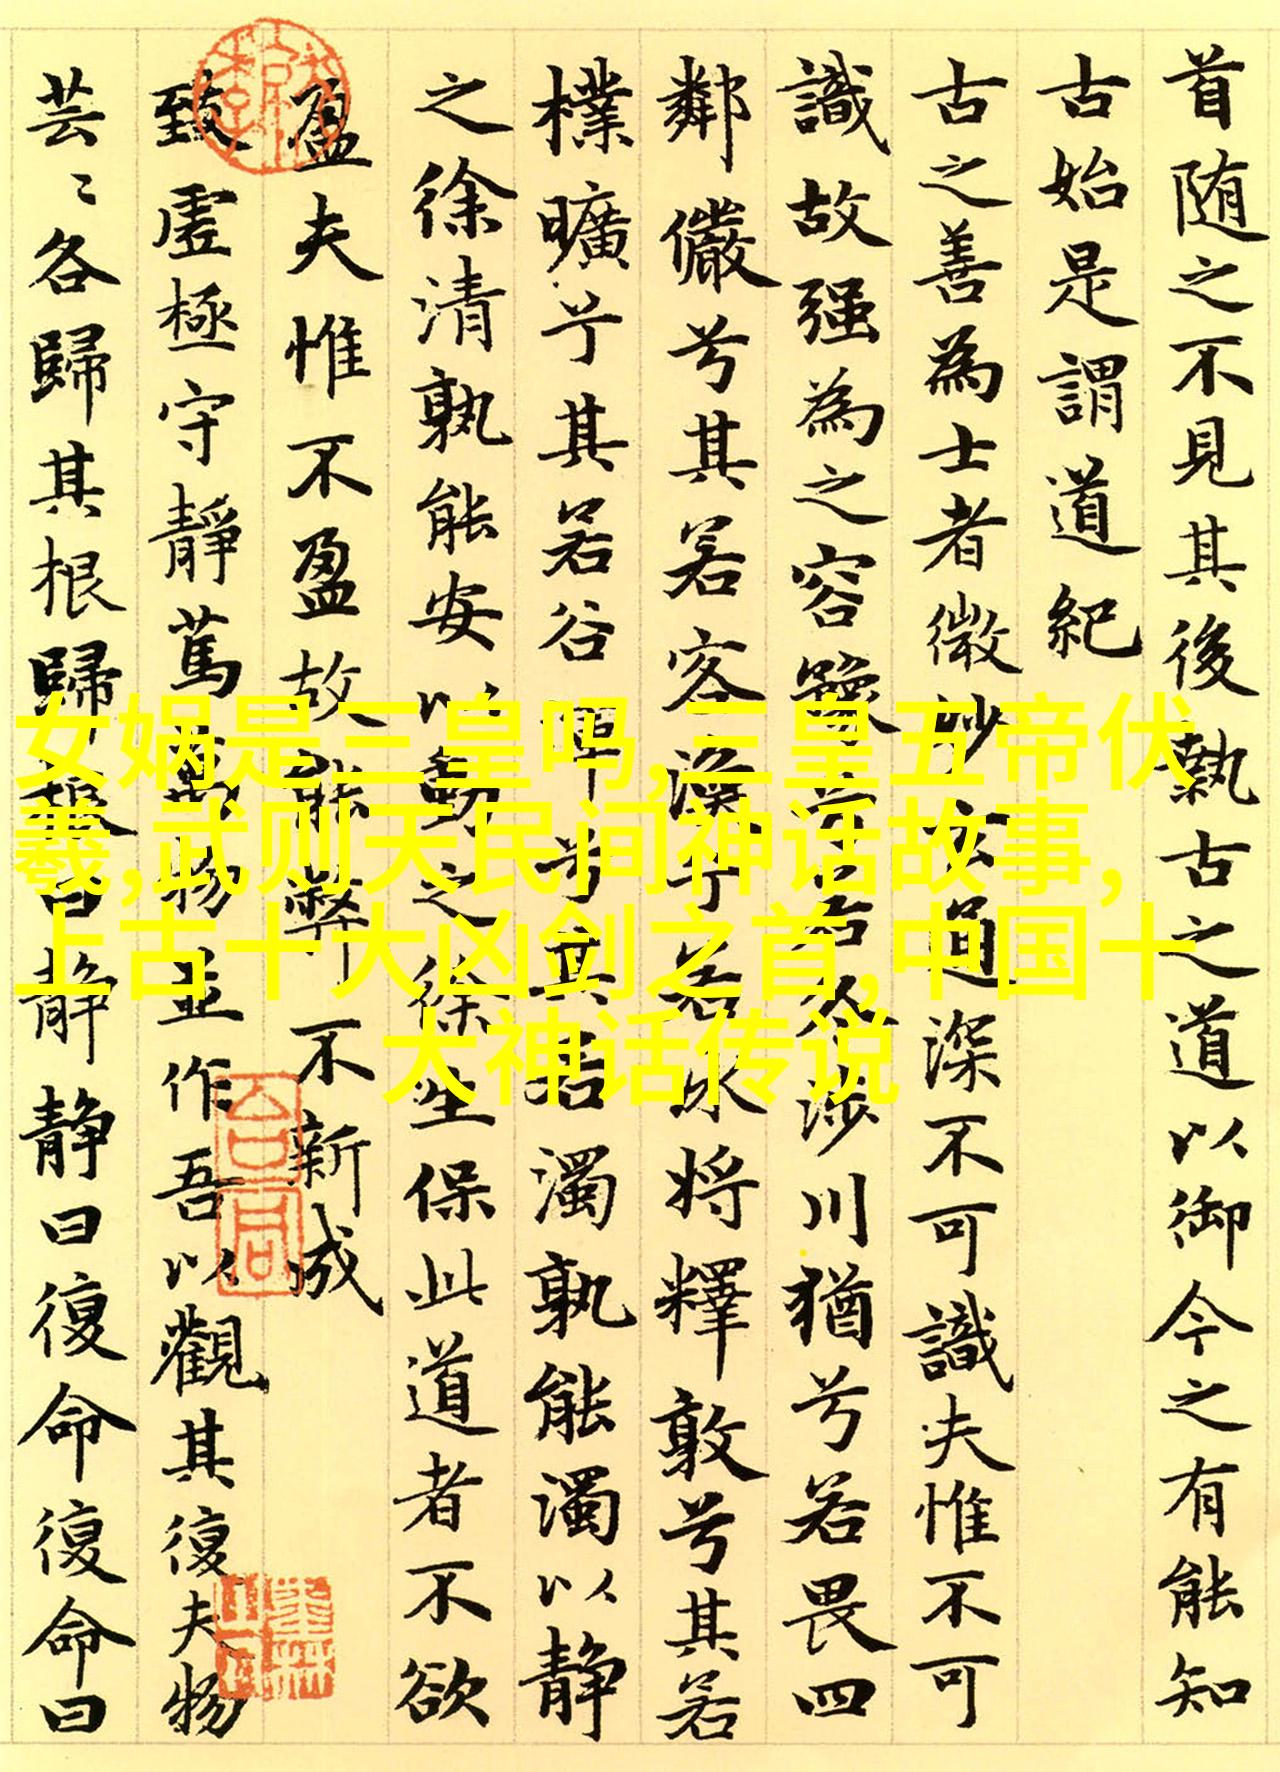 首随之不見其後執古之道以御今之有能知
古始是謂道紀
古之善為士者微妙玄通深不可識夫惟不可
識故强為之容豫兮若冬涉川猶兮若畏四
鄰儼兮其若客渙兮若冰将釋敦兮其若
樸曠兮其若谷渾兮其若濁孰能濁以静
之徐清孰能安以動之徐生保此道者不欲
盈夫惟不盈故能弊不新成
致虚極守靜篤萬物並作吾以觀其復夫物
芸〻各歸其根歸根曰静静曰復命復命曰
女娲是三皇吗,三皇五帝伏
羲,武则天民间神话故事,
上古十大凶剑之首,中国十
大神话传说